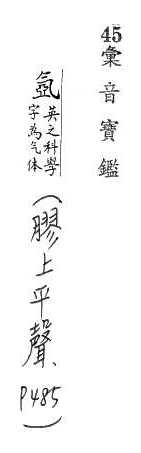 45彙音寶鑑
氬
英之科學
字為气体
(膠上平聲、P485)